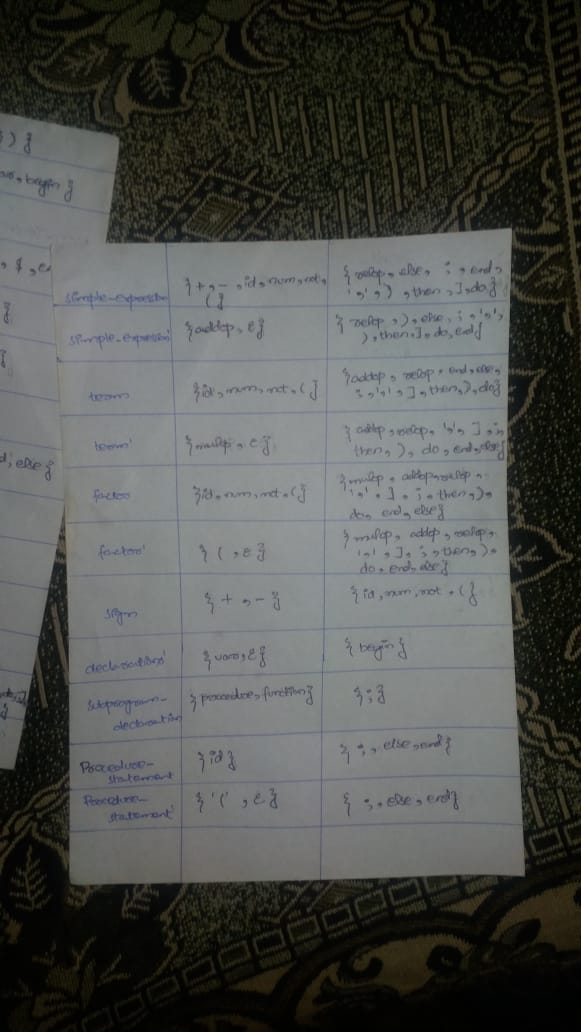 ) }
begin }
}
}
else }
simple-expression
{ +, -, id, num, not,
( }
{ relop, else, ;, end,
',', ), then, ], do }
simple-expression'
{ addop, ε }
{ relop, ), else, ;, ',',
), then, ], do, end }
term
{ id, num, not, ( }
{ addop, relop, end, else,
;, ',', ], then, ), do }
term'
{ mulop, ε }
{ addop, relop, ',', ], ;,
then, ), do, end, else }
factor
{ id, num, not, ( }
{ mulop, addop, relop,
',', ], ;, then, ),
do, end, else }
factor'
{ (, ε }
{ mulop, addop, relop,
',', ], ;, then, ),
do, end, else }
sign
{ +, - }
{ id, num, not, ( }
declarations'
{ var, ε }
{ begin }
subprogram-
declaration
{ procedure, function }
{ ; }
Procedure-
statement
{ id }
{ ;, else, end }
Procedure-
statement'
{ '(', ε }
{ ;, else, end }